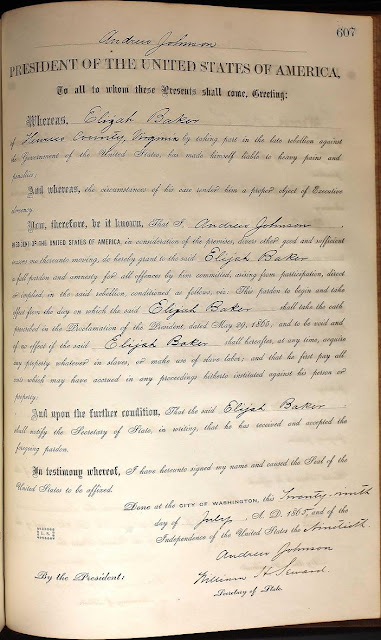 607
Andrew Johnson
PRESIDENT OF THE UNITED STATES OF AMERICA,
To all to whom these Presents shall come, Greeting:
Whereas, Elijah Baker
of County, Virginia by taking part in the late rebellion against
the Government of the United States, has made himself liable to heavy pains and
penalties;
And whereas, the circumstances of his case render him a proper object of Executive
clemency,
Now, therefore, be it known, That I, Andrew Johnson
PRESIDENT OF THE UNITED STATES OF AMERICA, in consideration of the premises, divers other good and sufficient
reasons me thereunto moving, do hereby grant to the said Elijah Baker
a full pardon and amnesty for all offences by him committed, arising from participation, direct
or implied, in the said rebellion, conditioned as follows, viz: This pardon to begin and take
effect from the day on which the said Elijah Baker shall take the oath
prescribed in the Proclamation of the President, dated May 29, 1865; and to be void and
of no effect if the said Elijah Baker shall hereafter, at any time, acquire
any property whatever in slaves, or make use of slave labor; and that he first pay all
costs which may have accrued in any proceedings hitherto instituted against his person or
property;
And upon the further condition, That the said Elijah Baker
shall notify the Secretary of State, in writing, that he has received and accepted the
foregoing pardon.
In testimony whereof, I have hereunto signed my name and caused the Seal of the
United States to be affixed.
Done at the CITY OF WASHINGTON, this Twenty-ninth
day of July A. D. 1865, and of the
Independence of the United States the Ninetieth.
L. S.
Andrew Johnson
By the President:
William H Seward
Secretary of State.